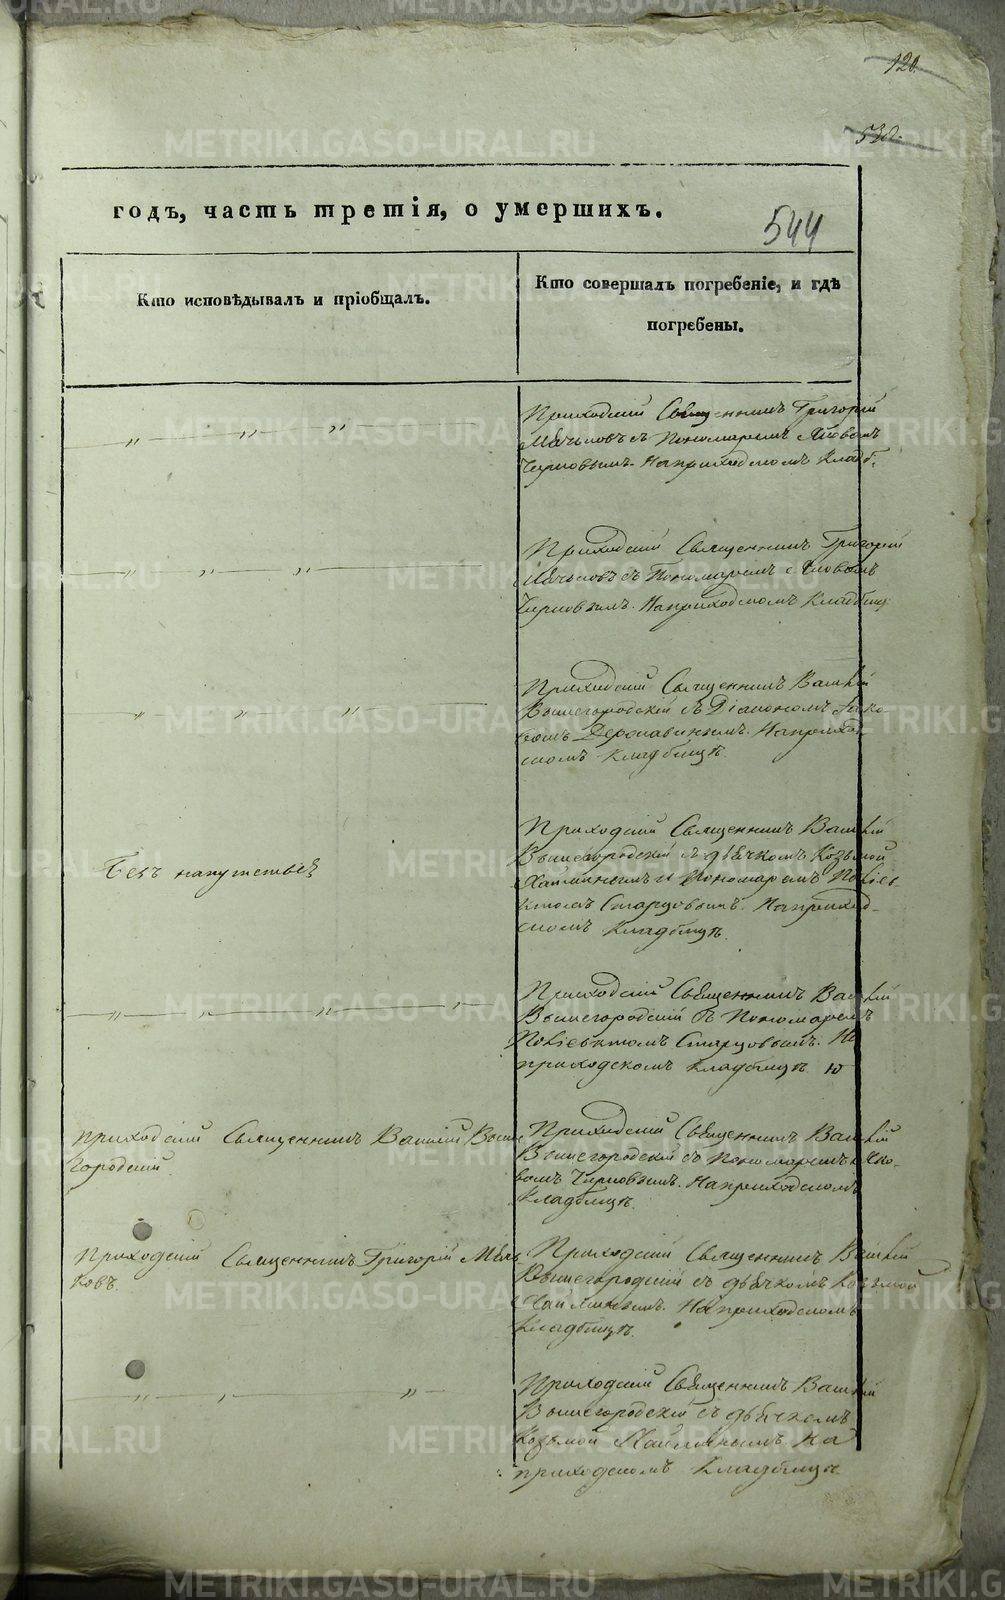 120.
530.
годъ, часть третія, о умершихъ.
544
Кто исповѣдывалъ и пріобщалъ.
Кто совершалъ погребеніе, и гдѣ
погребены.
Приходскій Священникъ Григорій
съ Пономаремъ Яковомъ
Черновымъ. На приходскомъ Кладб.
Приходскій Священникъ Григорій
съ Пономаремъ Яковомъ
Черновымъ. На приходскомъ Кладбищ
Приходскій Священникъ Василій
Вышегородскій съ Діакономъ Яко-
вомъ Державинымъ. На приход-
скомъ Кладбищѣ.
Безъ напутствія
Приходскій Священникъ Василій
Вышегородскій съ дьячкомъ Козьмой
и Пономаремъ
Старцовымъ. На приход-
скомъ Кладбищѣ.
Приходскій Священникъ Василій
Вышегородскій съ Пономаремъ
Старцовымъ. На
приходскомъ Кладбищѣ
Приходскій Священникъ Василій Выше
городскій.
Приходскій Священникъ Василій
Вышегородскій съ Пономаремъ Яко-
вомъ Черновымъ. На приходскомъ
Кладбищѣ.
Приходскій Священникъ Григорій Мѣль
ковъ
Приходскій Священникъ Василій
Вышегородскій съ дьячкомъ Козьмой
На приходскомъ
Кладбищѣ.
Приходскій Священникъ Василій
Вышегородскій съ дьячкомъ
Козьмой На
приходскомъ Кладбищѣ
METRIKI.GASO-URAL.RU